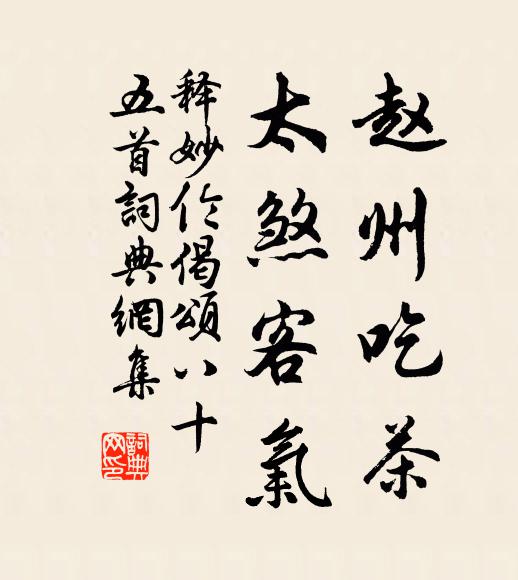 赵州吃茶
太煞客氣
释妙伦偈頌八十
五首詞典網集
詞典網印